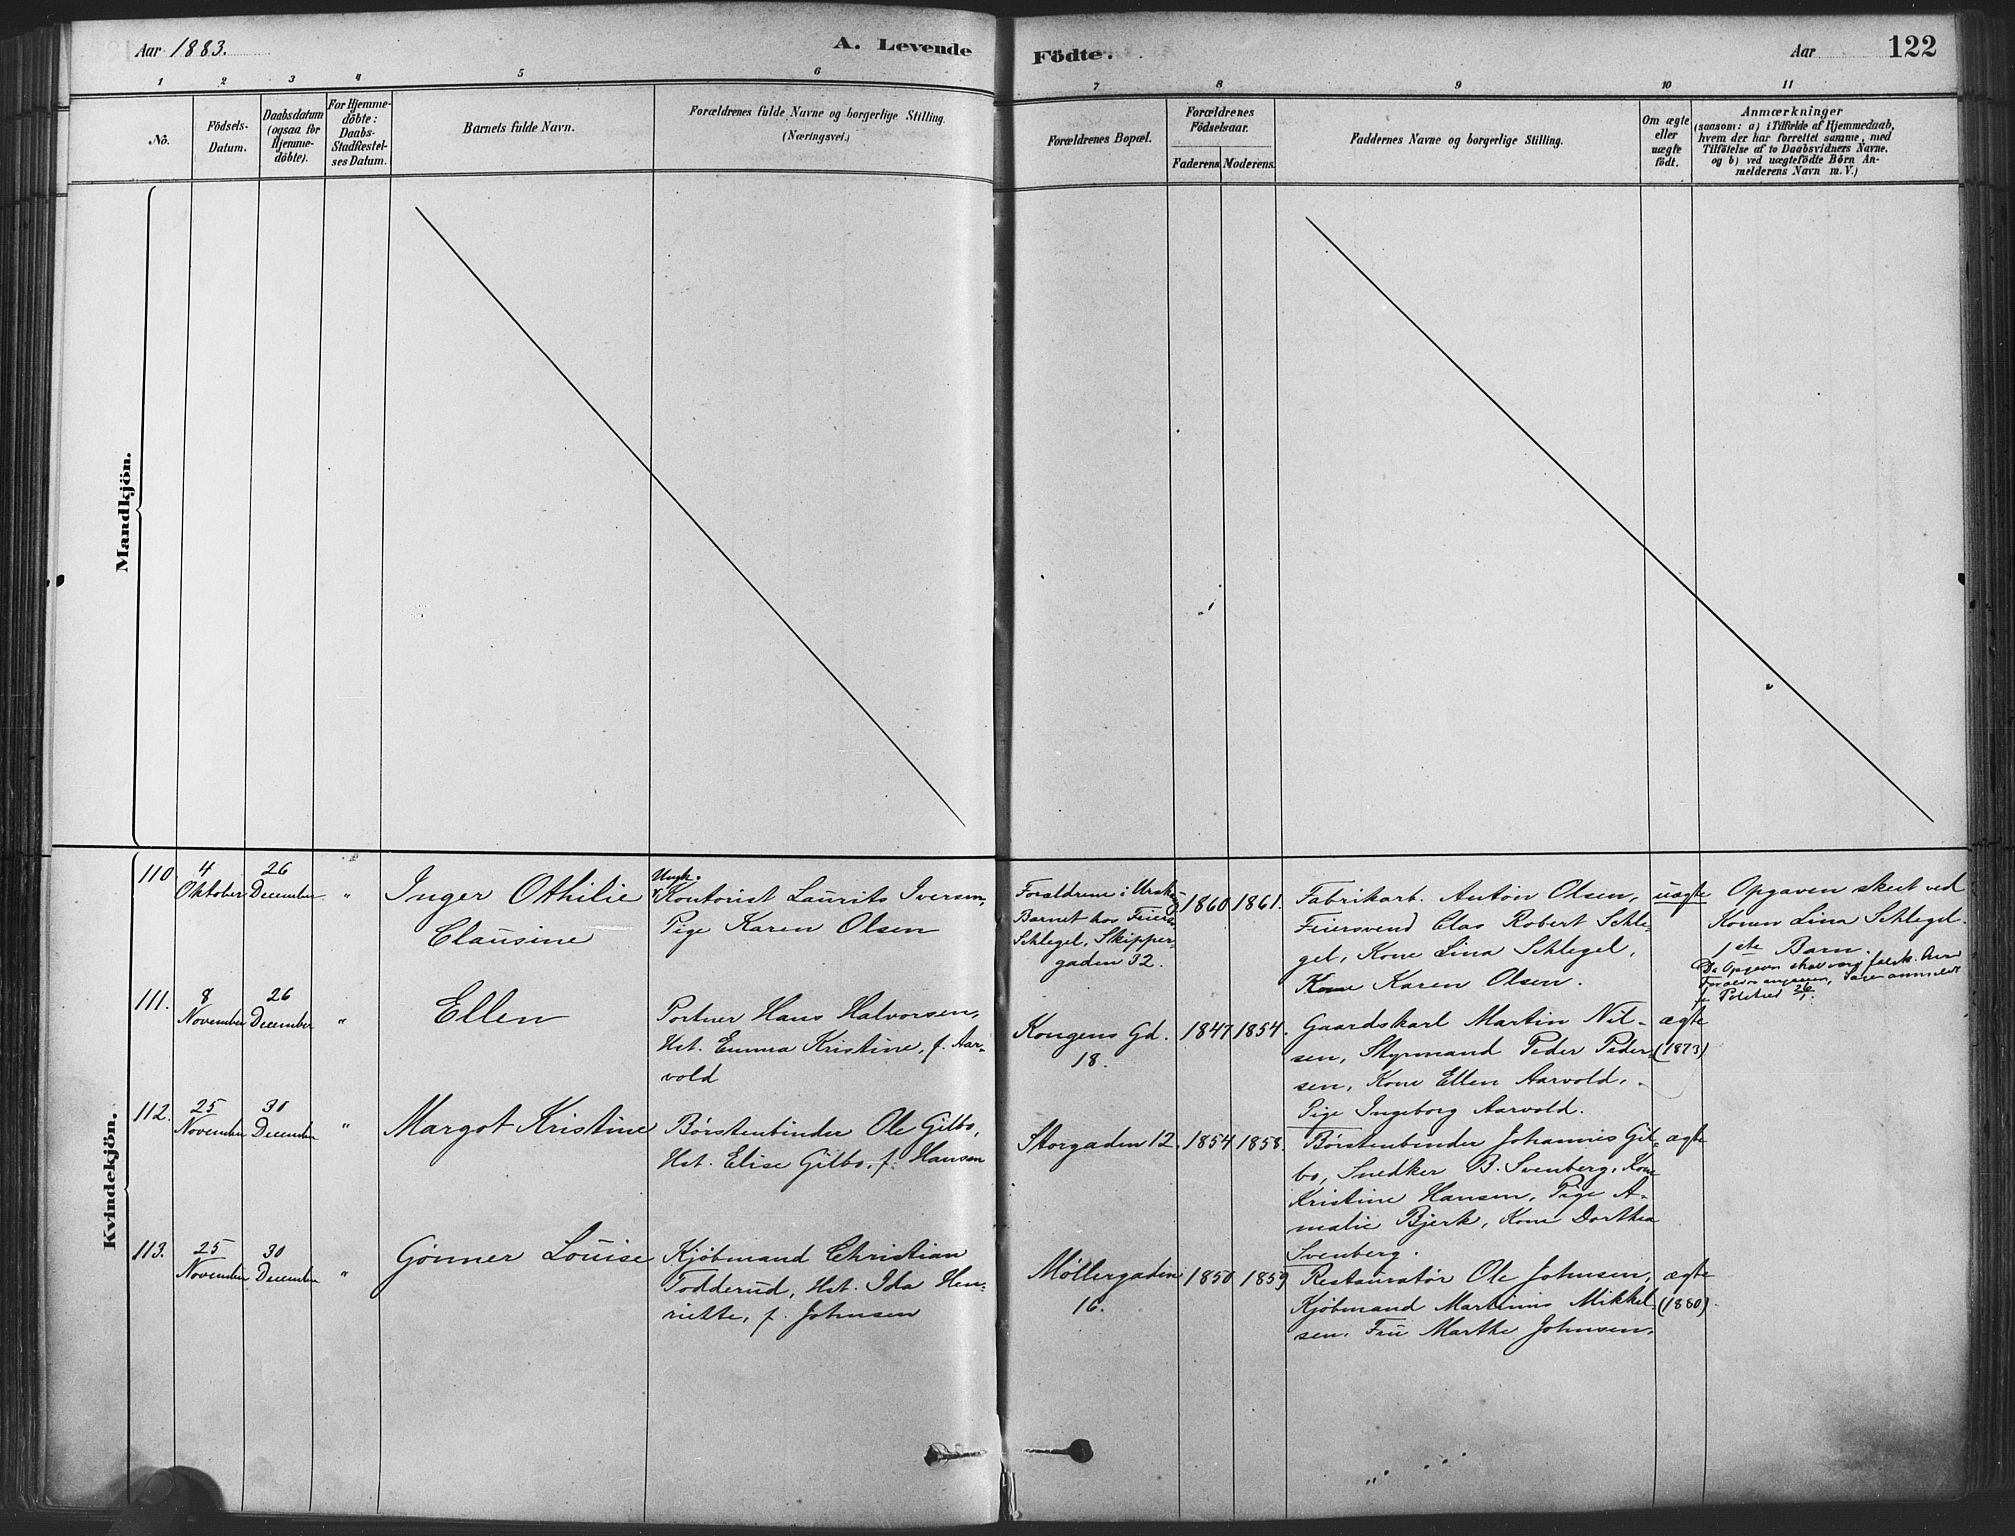 Aar 1883.
A. Levende
Födte.
Aar
122
1 2 3 4 5 6 7 8 9 10 11
No.
Födsels-
Datum.
Daabsdatum
(ogsaa for
Hjemme-
döbte).
For Hjemme-
döbte:
Daabs-
Stadfæstel-
ses Datum.
Barnets fulde Navn.
Forældrenes fulde Navne og borgerlige Stilling.
(Næringsvei.)
Forældrenes Bopæl.
Forældrenes
Födselsaar.
Faderens. Moderens.
Faddernes Navne og borgerlige Stilling.
Om ægte
eller
uægte
födt.
Anmærkninger
(saasom: a) i Tilfælde af Hjemmedaab,
hvem der har forrettet samme, med
Tilföielse af to Daabsvidners Navne.
og b) ved uægtefödte Börn An-
melderens Navn m. V.)
Mandkjön.
Kvindekjön.
110
4
Oktober
26
December
"
Inger Othilie
Clausine
Ungk.
Kontorist Laurits Iversen,
Pige Karen Olsen
Forældrene i Urskog
Barnet hos Feiersv.
Schlegel, Skipper-
gaden 32.
1860
1861.
Fabrikarb. Anton Olsen,
Feiersvend Clas Robert Schle-
gel, Kone Lina Schlegel,
Kone Karen Olsen.
uægte
Opgaven skeet ved
Konen Lina Schlegel.
1ste Barn.
Da Opgaven skal være falsk
111.
8
November
26
December
"
Ellen
Portner Hans Halvorsen,
Hst. Emma Kristine, f. Aar-
vold
Kongens Gd.
18.
1847
1854.
Gaardskarl Martin Nil-
sen, Styrmand Peder Peder-
sen, Kone Ellen Aarvold,
Pige Ingeborg Aarvold.
ægte
(1873)
112.
25
November
30
December
"
Margot Kristine
Börstenbinder Ole Gilbo,
Hst. Elise Gilbo, f. Hansen
Storgaden 12.
1854
1858.
Börstenbinder Johannes Gil-
bo, Snedker B. Svenberg, Kone
Kristine Hansen, Pige A-
malie Bjerk, Kone Dorthea
Svenberg.
ægte
113.
25
November
30
December
"
Gönner Louise
Kjöbmand Christian
Todderud, Hst. Ida Hen-
riette, f. Johnsen
Möllergaden
16.
1850
1859
Restauratör Ole Johnsen,
Kjöbmand Martinius Mikkel-
sen. Fru Marthe Johnsen.
ægte
(1880).